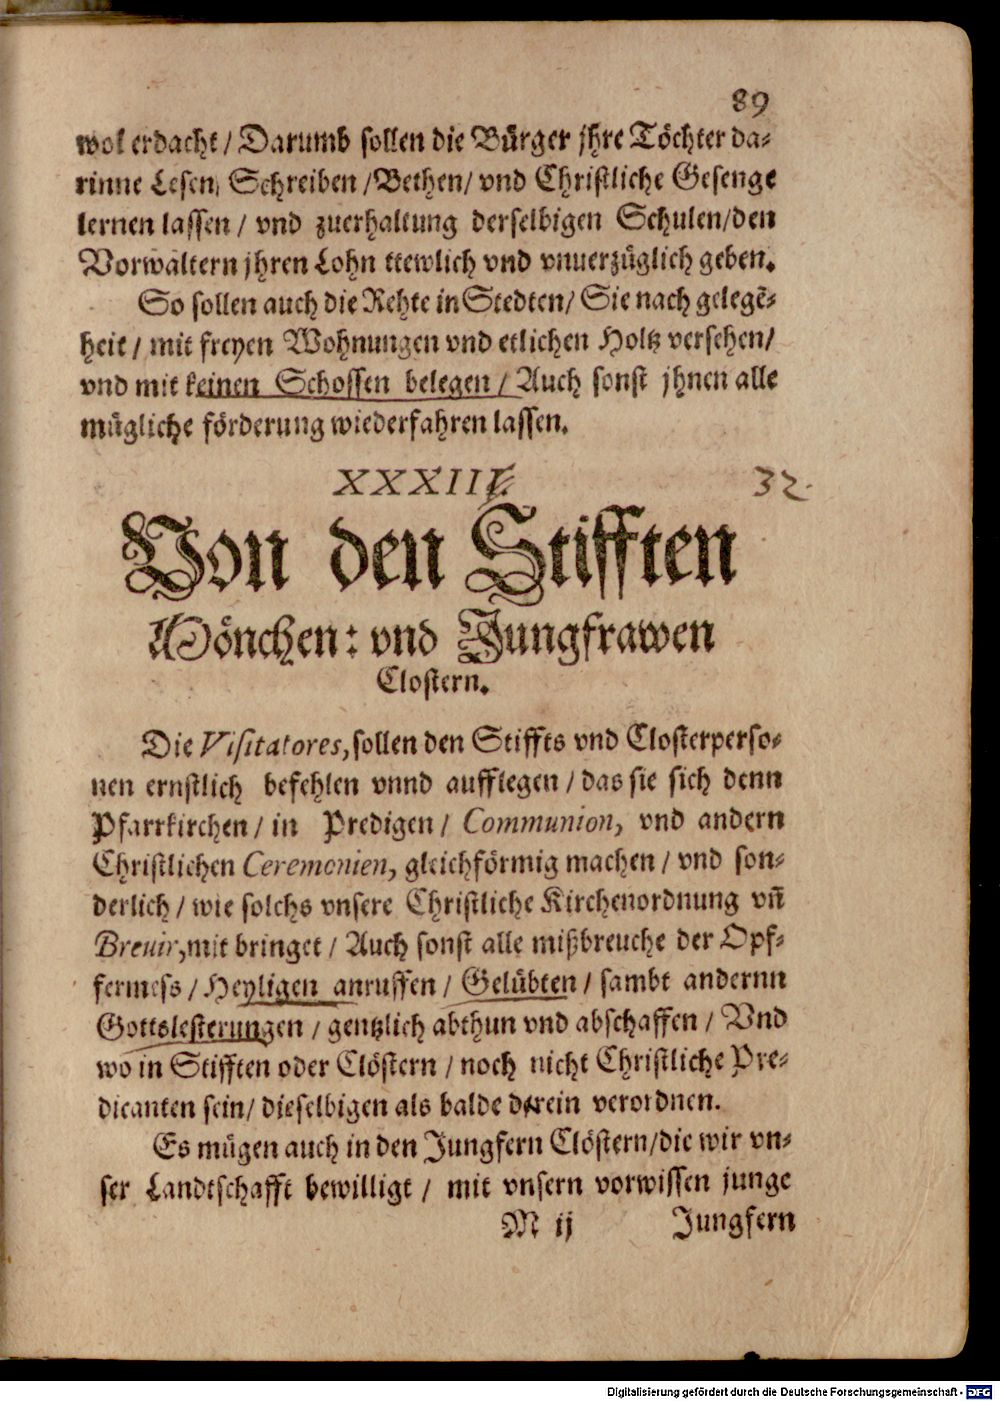 89
wol erdacht / Darumb sollen die Bürger jhre Töchter da-
rinne Lesen, Schreiben / Bethen / vnd Christliche Gesenge
lernen lassen / vnd zuerhaltung derselbigen Schulen / den
Vorwaltern jhren Lohn ttewlich vnd vnuerzüglich geben.
So sollen auch die Rehte in Stedten / Sie nach gelegē-
heit / mit freyen Wohnungen vnd etlichen Holtz versehen /
vnd mit keinen Schossen belegen / Auch sonst jhnen alle
mügliche förderung wiederfahren lassen.
XXXIII.
32.
Von den Stifften
Mönchen: vnd Jungfrawen
Clostern.
Die Visitatores, sollen den Stiffts vnd Closterperso-
nen ernstlich befehlen vnnd aufflegen / das sie sich denn
Pfarrkirchen / in Predigen / Communion, vnd andern
Christlichen Ceremonien, gleichförmig machen / vnd son-
derlich / wie solchs vnsere Christliche Kirchenordnung vñ
Breuir, mit bringet / Auch sonst alle mißbreuche der Opf-
fermess / Heyligen anruffen / Gelübten / sambt andernn
Gottslesterungen / gentzlich abthun vnd abschaffen / Vnd
wo in Stifften oder Clöstern / noch nicht Christliche Pre-
dicanten sein / dieselbigen als balde darein verordnen.
Es mügen auch in den Jungfern Clöstern / die wir vn-
ser Landtschafft bewilligt / mit vnsern vorwissen junge
M ij Jungfern
Digitalisierung gefördert durch die Deutsche Forschungsgemeinschaft - DFG